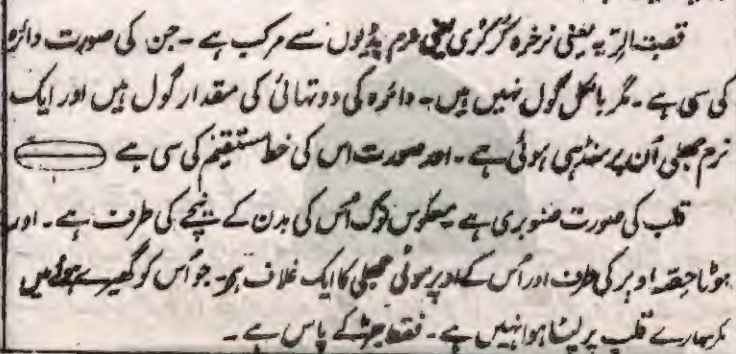 قصبۃ الریہ یعنی نرخرہ کُرکُری یعنی نرم ہڈیوں سے مرکب ہے ۔ جن کی صورت دائرہ
کی سی ہے ۔ مگر بالکل گول نہیں ہیں ۔ دائرہ کی دو تہائی کی مقدار گول ہیں اور ایک
نرم جھلی اُن پر منڈہی ہوئی ہے ۔ اور صورت اس کی خط مستقیم کی سی ہے
قلب کی صورت صنوبری ہے معکوس نوک اُس کی بدن کے نیچے کی طرف ہے ۔ اور
موٹا حصہ اوپر کی طرف اور اُس کے اوپر موٹی جھلی کا ایک غلاف ہے ۔ جو اُس کو گھیرے ہوئے ہیں
مگر سارے قلب پر لپٹا ہوا نہیں ہے ۔ فقط جڑ کے پاس ہے ۔